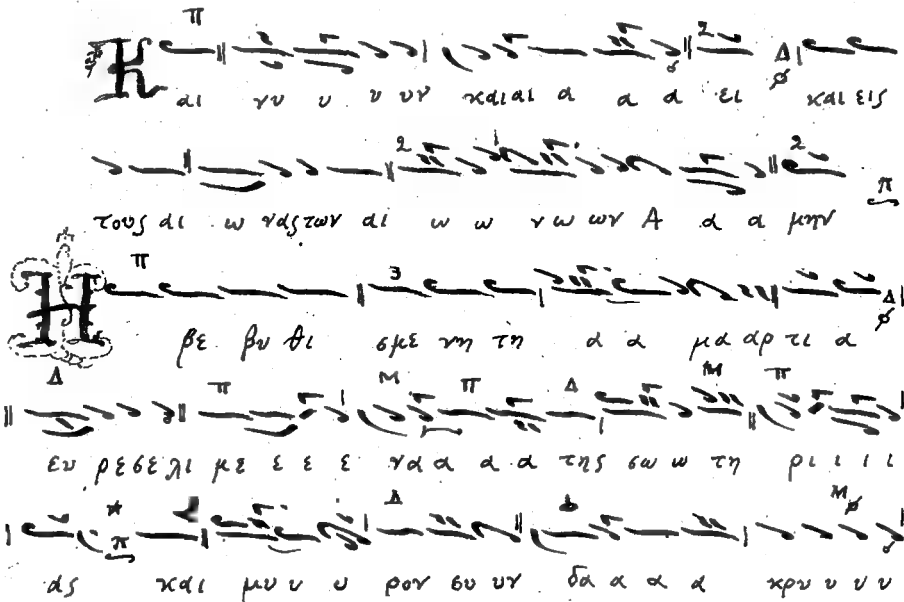 Και νυ υ υ υν καιαι α α α ει και εις
τους αι ω ναςτων αι ω ω νω ων Α α α μην
Η βε βυ θι σμε νη τη α α μα αρ τι α
ευ ρεσελι με ε ε ε να α α α της σω ω τη ρι ι ι ι
ας και μυ υ υ ρον συ υν δα α α α κρυ υ υ υ